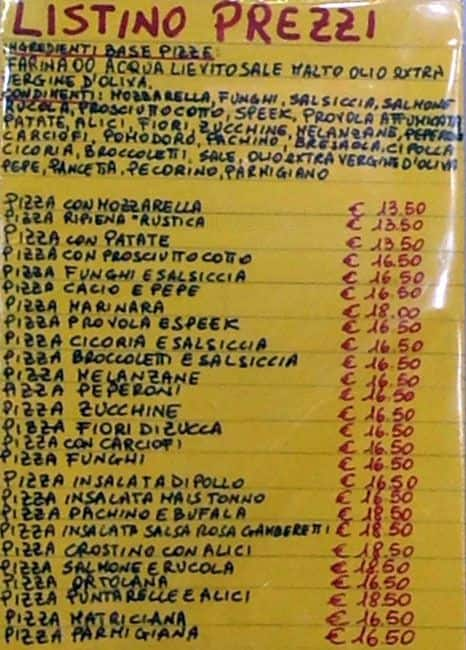 LISTINO PREZZI
INGREDIENTI BASE PIZZE:
FARINA 00 ACQUA LIEVITO SALE MALTO OLIO EXTRA
VERGINE D'OLIVA.
CONDIMENTI: MOZZARELLA, FUNGHI, SALSICCIA, SALMONE
RUCOLA, PROSCIUTTO COTTO, SPEEK, PROVOLA AFFUMICATA
PATATE, ALICI, FIORI, ZUCCHINE, MELANZANE, PEPERONI
CARCIOFI, POMODORO, PACHINO, BRESAOLA, CIPOLLA
CICORIA, BROCCOLETTI, SALE, OLIO EXTRA VERGINE D'OLIVA
PEPE, PANCETTA, PECORINO, PARMIGIANO
PIZZA CON MOZZARELLA € 13.50
PIZZA RIPIENA "RUSTICA € 13.50
PIZZA CON PATATE € 13.50
PIZZA CON PROSCIUTTO COTTO € 16.50
PIZZA FUNGHI E SALSICCIA € 16.50
PIZZA CACIO E PEPE € 16.50
PIZZA MARINARA € 18.00
PIZZA PROVOLA E SPEEK € 16.50
PIZZA CICORIA E SALSICCIA € 16.50
PIZZA BROCCOLETTI E SALSICCIA € 16.50
PIZZA MELANZANE € 16.50
PIZZA PEPERONI € 16.50
PIZZA ZUCCHINE € 16.50
PIZZA FIORI DI ZUCCA € 16.50
PIZZA CON CARCIOFI € 16.50
PIZZA FUNGHI € 16.50
PIZZA INSALATA DI POLLO € 16.50
PIZZA INSALATA MAIS TONNO € 16.50
PIZZA PACHINO E BUFALA € 18.50
PIZZA INSALATA SALSA ROSA GAMBERETTI € 18.50
PIZZA CROSTINO CON ALICI € 18.50
PIZZA SALMONE E RUCOLA € 18.50
PIZZA ORTOLANA € 16.50
PIZZA PUNTARELLE E ALICI € 18.50
PIZZA MATRICIANA € 16.50
PIZZA PARMIGIANA € 16.50